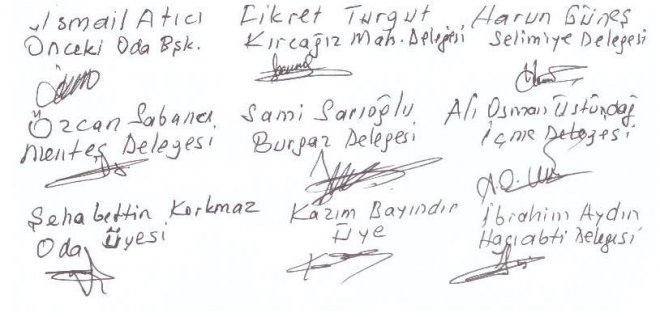 İsmail Atıcı
Önceki Oda Bşk.
Fikret Turgut
Kırcağız Mah. Delegesi
Harun Güneş
Selimiye Delegesi
Özcan Sabancı
Menteş Delegesi
Sami Sarıoğlu
Burgaz Delegesi
Ali Osman Üstündağ
İçme Delegesi
Şehabettin Korkmaz
Oda Üyesi
Kazım Bayındır
Üye
İbrahim Aydın
Hacıabti Delegesi